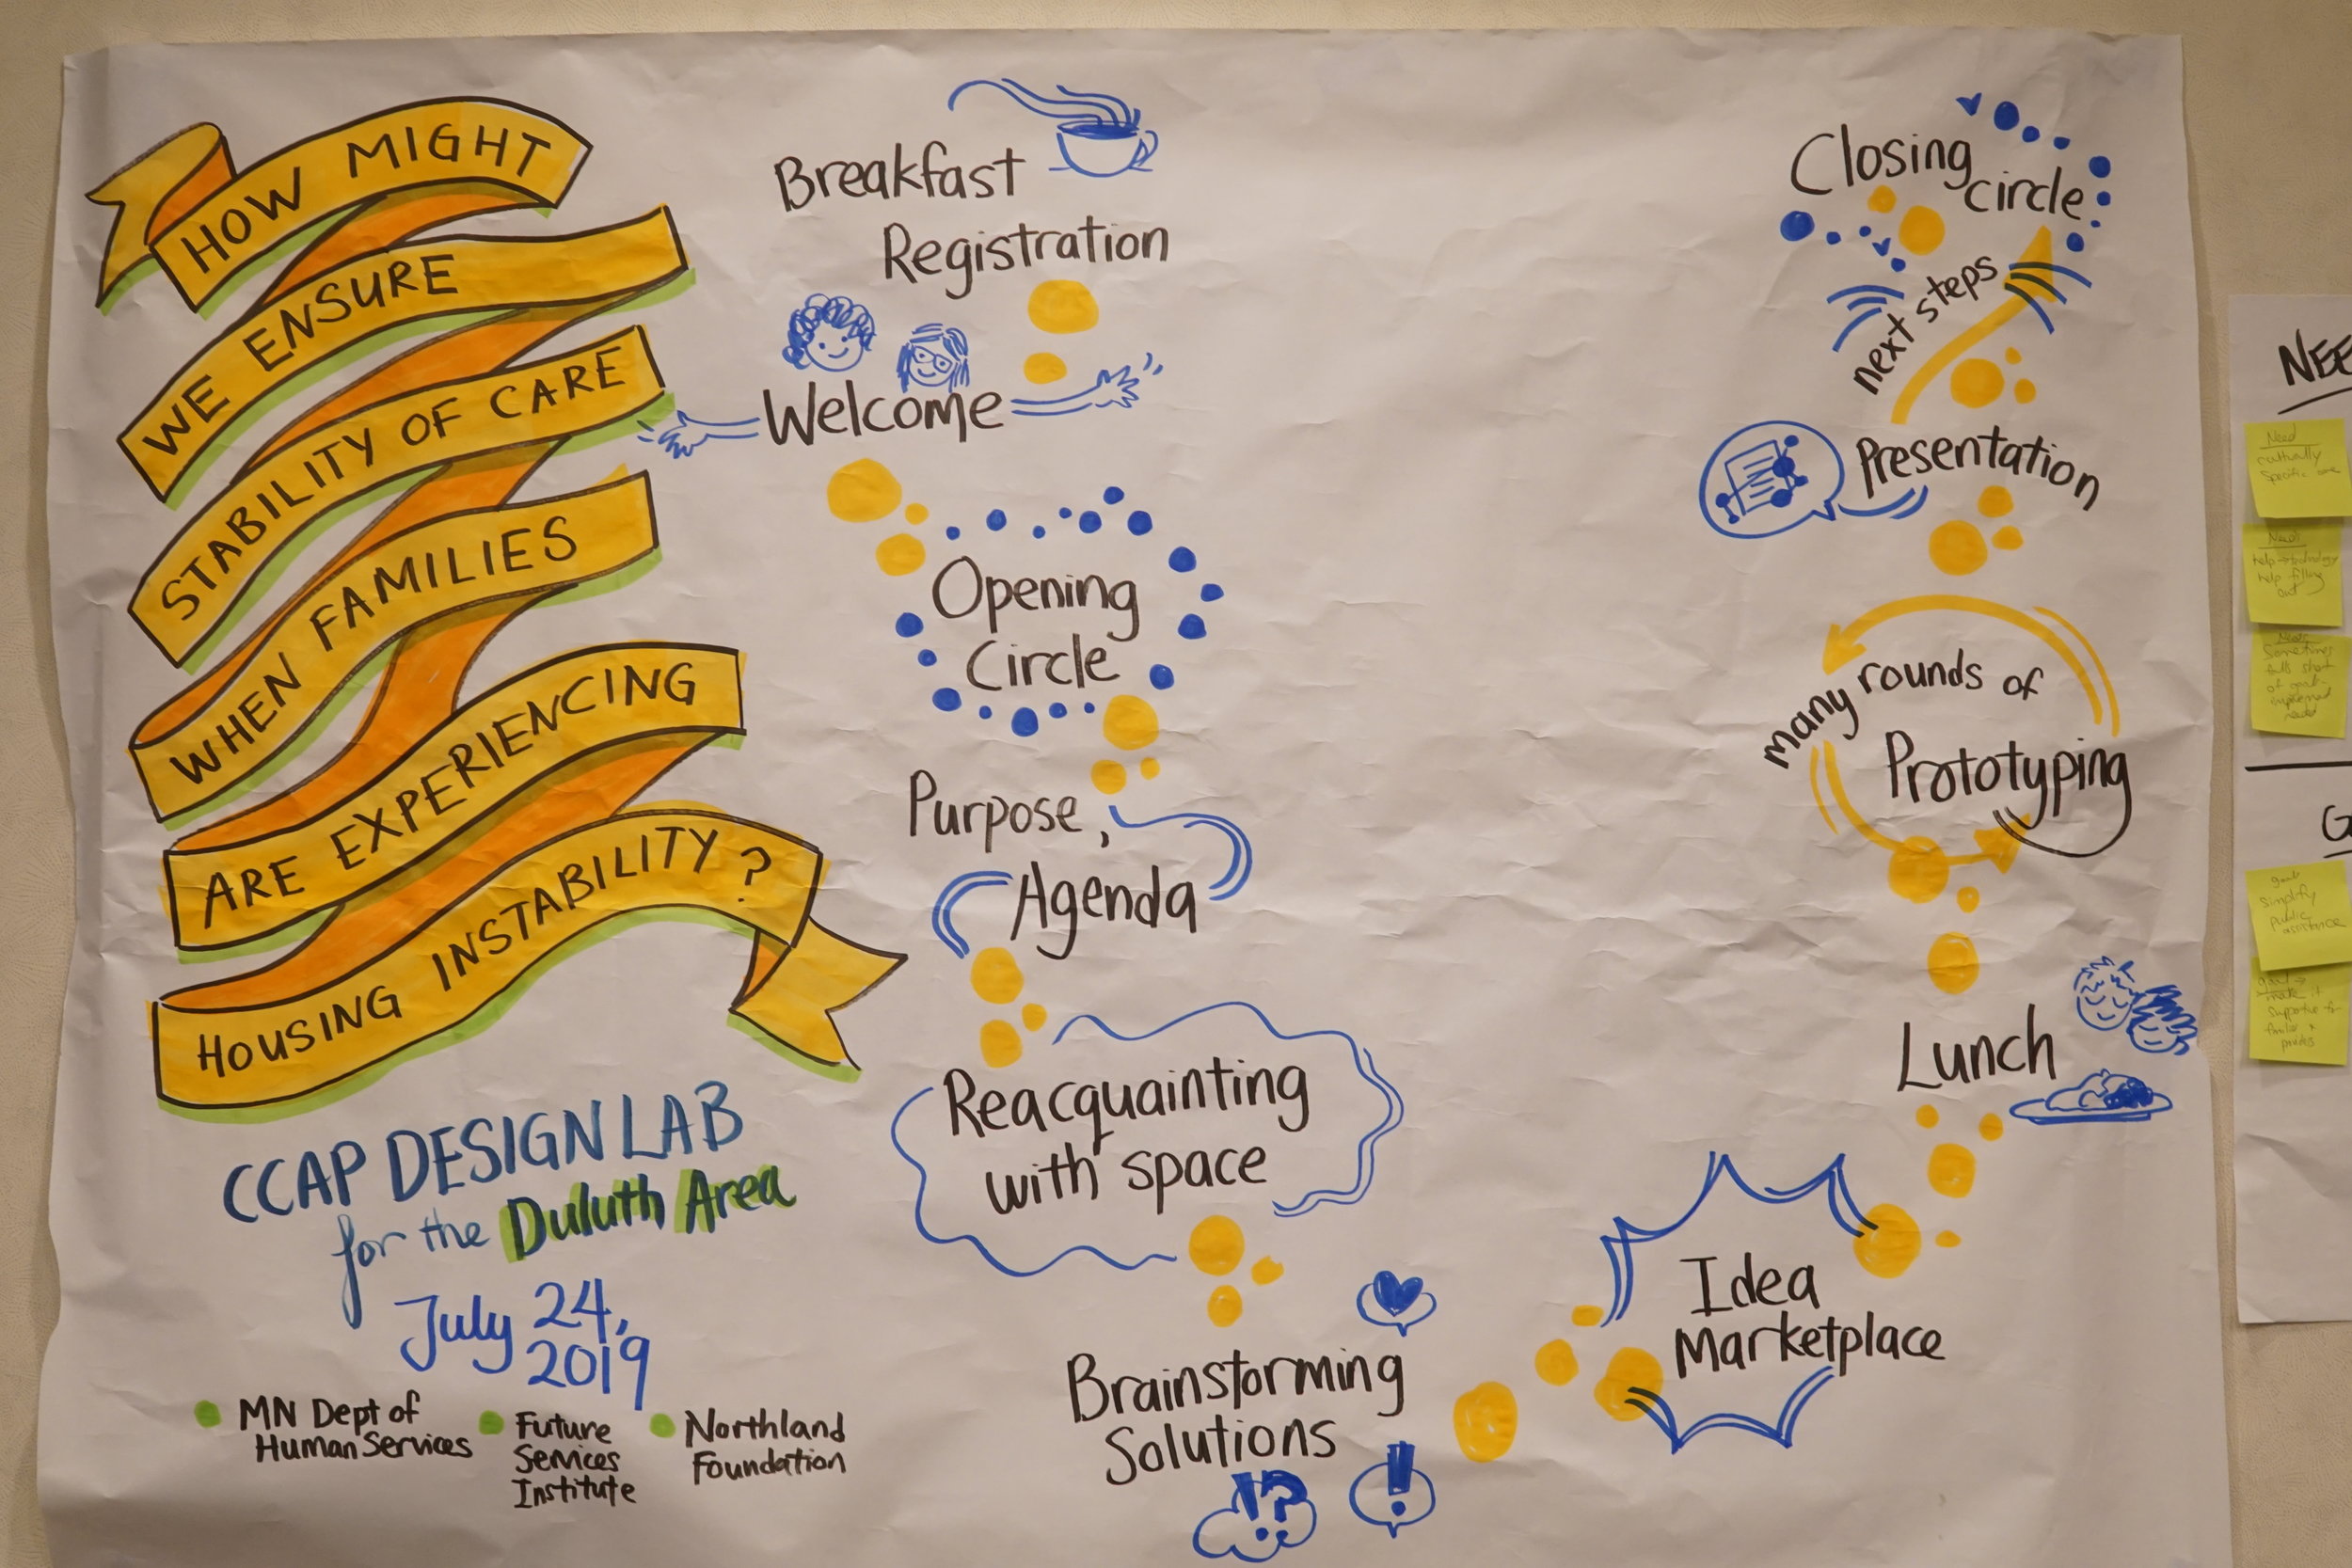 HOW MIGHT
WE ENSURE
STABILITY OF CARE
WHEN FAMILIES
ARE EXPERIENCING
HOUSING INSTABILITY?
CCAP DESIGN LAB
for the Duluth Area
July 24,
2019
MN Dept of
Human Services
Future
Services
Institute
Northland
Foundation
Breakfast
Registration
Welcome
Opening
Circle
Purpose,
Agenda
Reacquainting
with space
Brainstorming
Solutions
!?
!
Idea
Marketplace
Lunch
many rounds of
Prototyping
Presentation
next steps
Closing
circle
NEE
Need
culturally
specific
Need
help
help filling
out
Sometimes
falls short
of
needs
G
goal
simplify
public
assistance
goal →
make it
supportive for